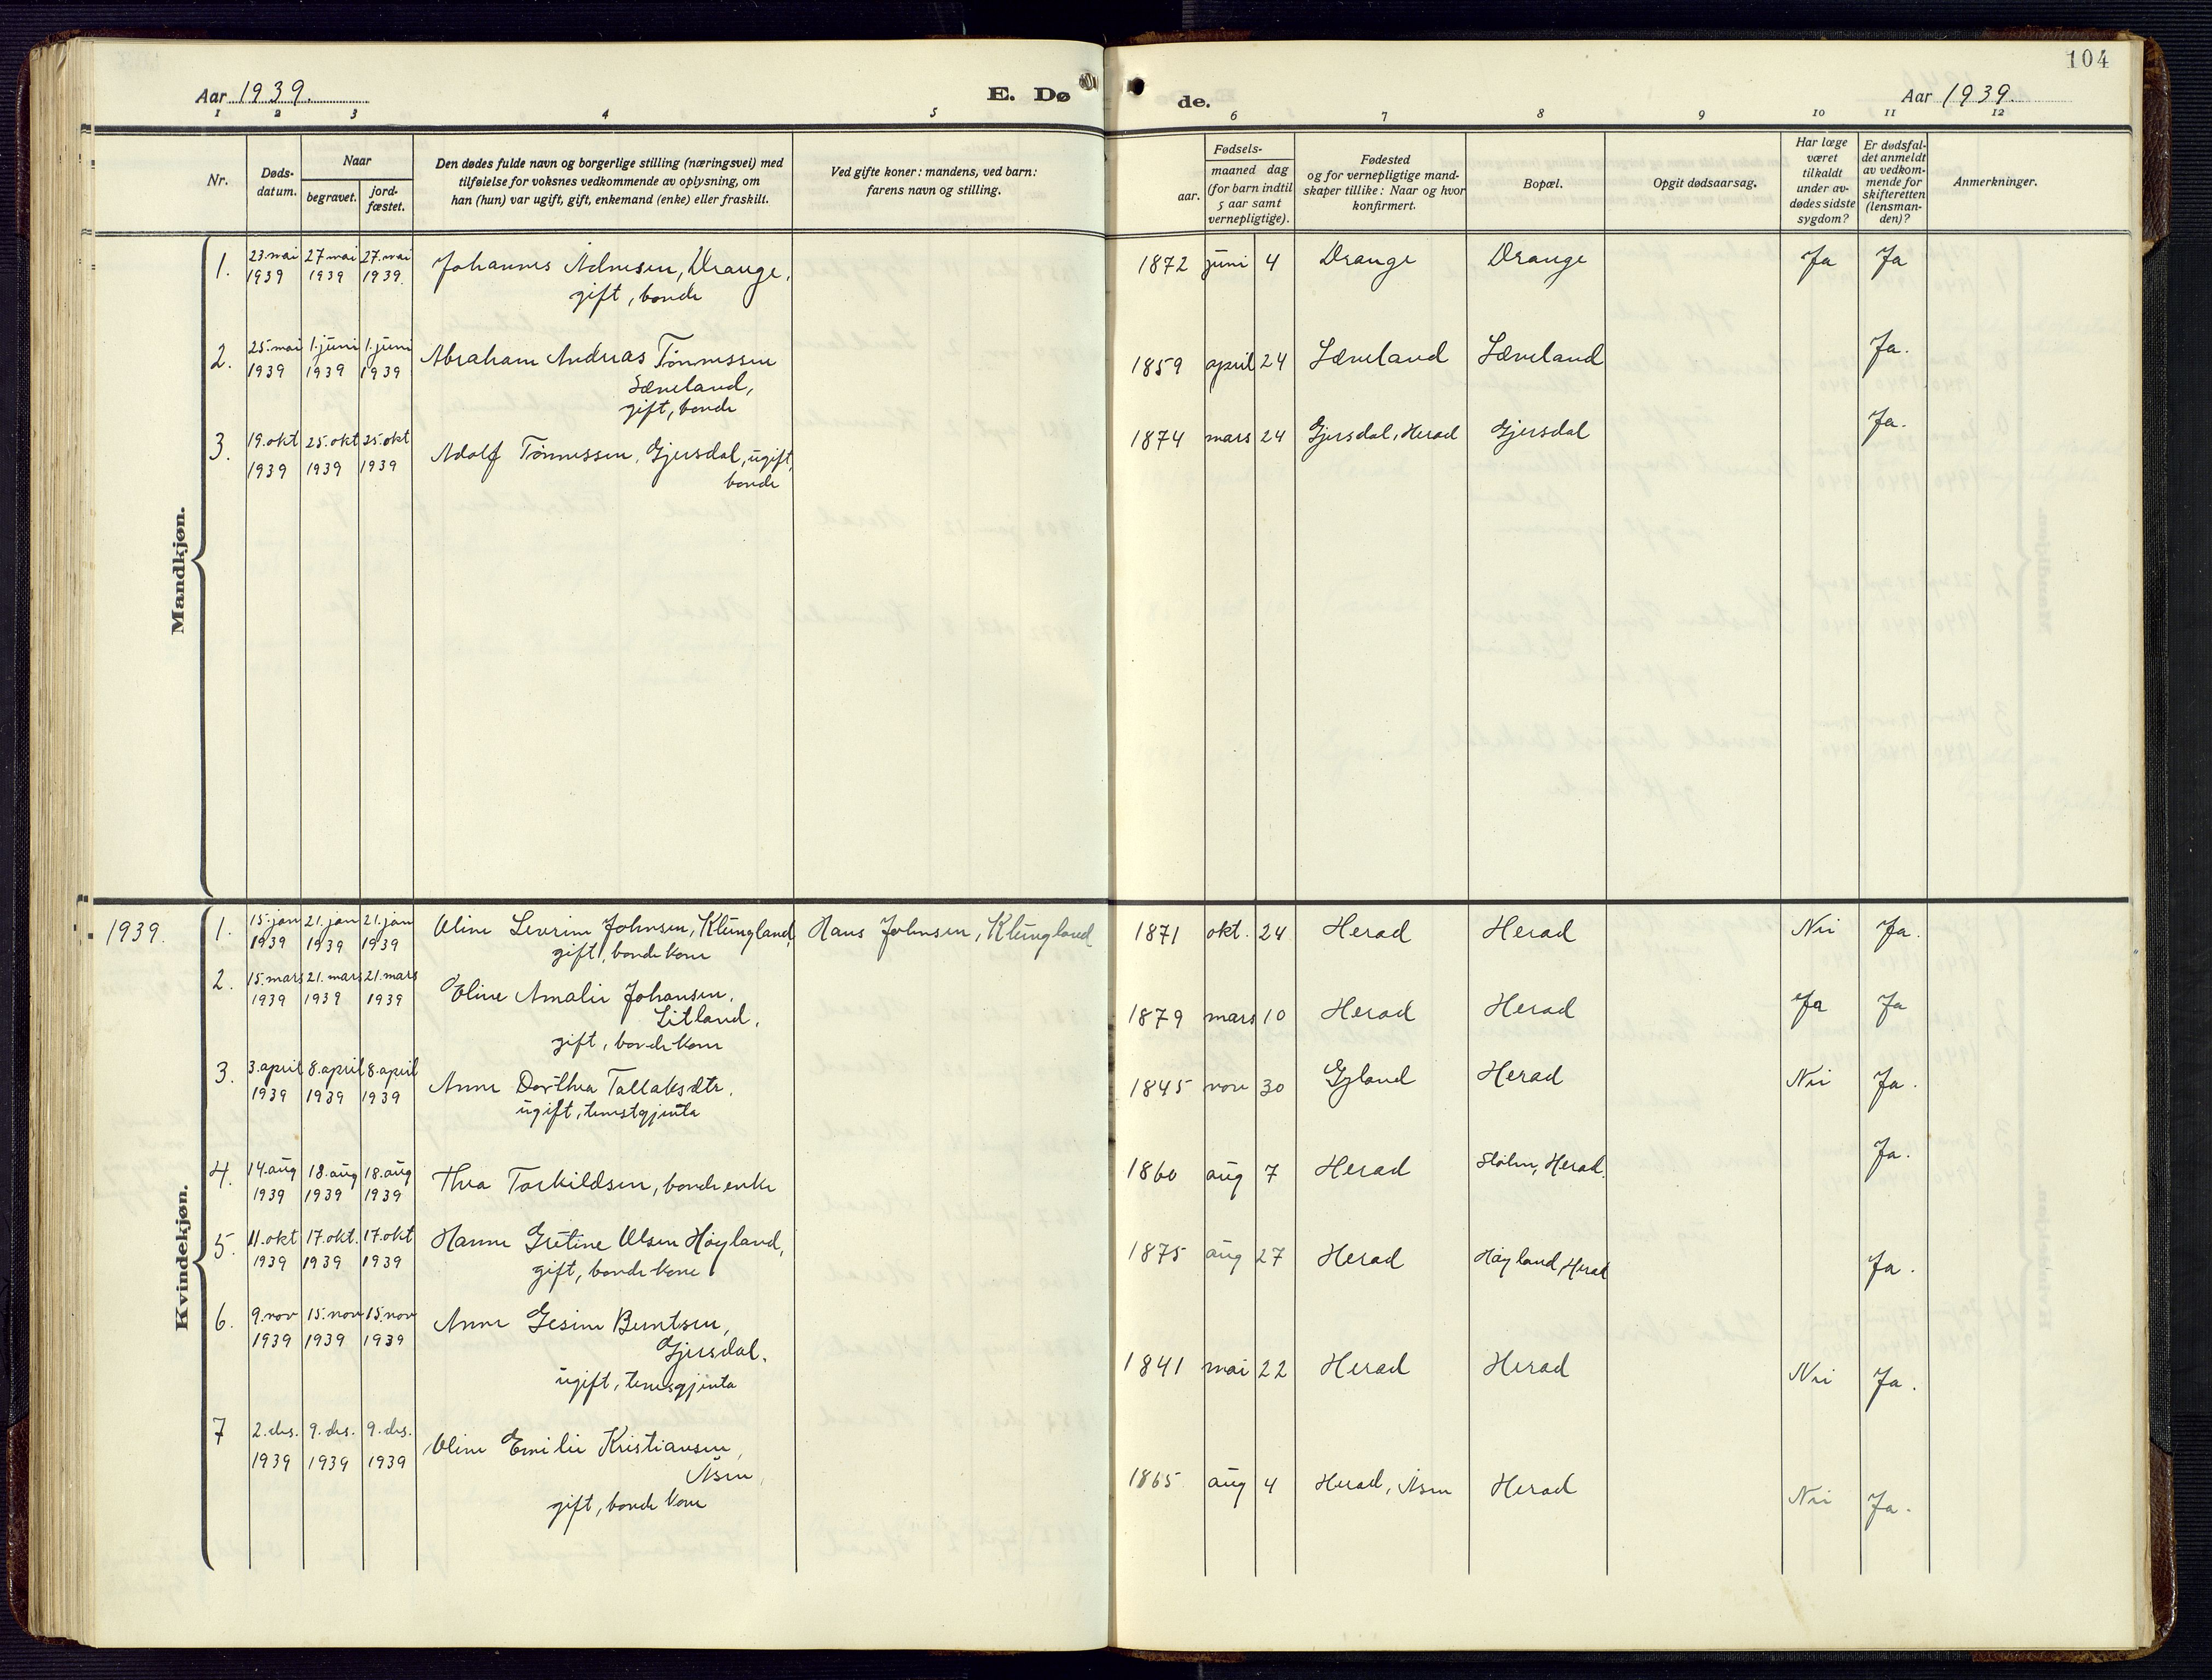 104
Aar 1939.
E. Dø
de.
Aar 1939.
1 2 3 4 5 6 7 8 9 10 11 12
Nr.
Døds-
datum.
Naar
begravet.
jord-
fæstet.
Den dødes fulde navn og borgerlige stilling (næringsvei) med
tilføielse for voksnes vedkommende av oplysning, om
han (hun) var ugift, gift, enkemand (enke) eller fraskilt.
Ved gifte koner: mandens, ved barn:
farens navn og stilling.
Fødsels-
aar.
maaned dag
(for barn indtil
5 aar samt
vernepligtige).
Fødested
og for vernepligtige mand-
skaper tillike: Naar og hvor
konfirmert.
Bopæl.
Opgit dødsaarsag.
Har læge
været
tilkaldt
under av-
dødes sidste
sygdom?
Er dødsfal-
det anmeldt
av vedkom-
mende for
skifteretten
(lensman-
den)?
Anmerkninger.
Mandkjøn.
1. 23 mai 27 mai 27. mai Johannes Adnesen, Drange, 1872 juni 4 Drange Drange Ja Ja
1939 1939 1939. gift, bonde
2. 25. mai 1. juni 1. juni Abraham Andreas Tønnessen 1859 april 24 Læneland Læneland Ja.
1939 1939 1939 Læneland,
gift, bonde
3. 19. okt 25. okt 25. okt Adolf Tønnessen, Gjersdal, ugift, 1874 mars 24 Gjersdal, Herad Gjersdal Ja.
1939 1939 1939 bonde
Kvindekjøn.
1939. 1. 15. jan 21. jan 21. jan Oline Severine Johnsen, Klungland, Hans Johnsen, Klungland 1871 okt. 24 Herad Herad Nei Ja.
1939 1939 1939 gift, bondekone
2. 15. mars 21. mars 21. mars Eline Amalie Johansen, 1879 mars 10 Herad Herad Ja Ja
1939 1939 1939 Litland,
gift, bondekone
3. 3. april 8. april 8. april Anne Dorthea Tallaksdtr. 1845 nov 30 Gyland Herad Nei Ja.
1939 1939 1939 ugift, tenestgjenta
4. 14. aug 18. aug 18. aug Thea Torkildsen, bondeenke 1860 aug 7 Herad Herad. Ja.
1939 1939 1939
5. 11. okt 17. okt. 17. okt Hanne Gretine Olsen Høyland, 1875 aug 27 Herad Høyland, Herad Ja.
1939 1939 1939 gift, bondekone
6. 9. nov 15. nov 15. nov Anne Gesine Berntsen, 1841 mai 22 Herad Herad Nei Ja.
1939 1939 1939 Gjersdal.
ugift, tenesgjenta
7 2. des. 9. des. 9. des. Oline Emilie Kristiansen, 1865 aug 4 Herad, Åsen Herad Nei Ja.
1939 1939 1939 Åsen,
gift, bondekone